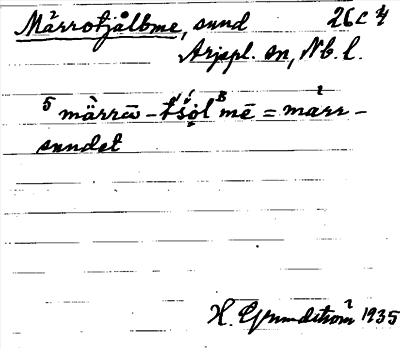 Märrotjålbme, sund 26 c 4
Arjepl. sn, Nb. l.
5 märrω̄ - tʹśo̭lᴮmē = marr-
sundet
H. Grundström 1935